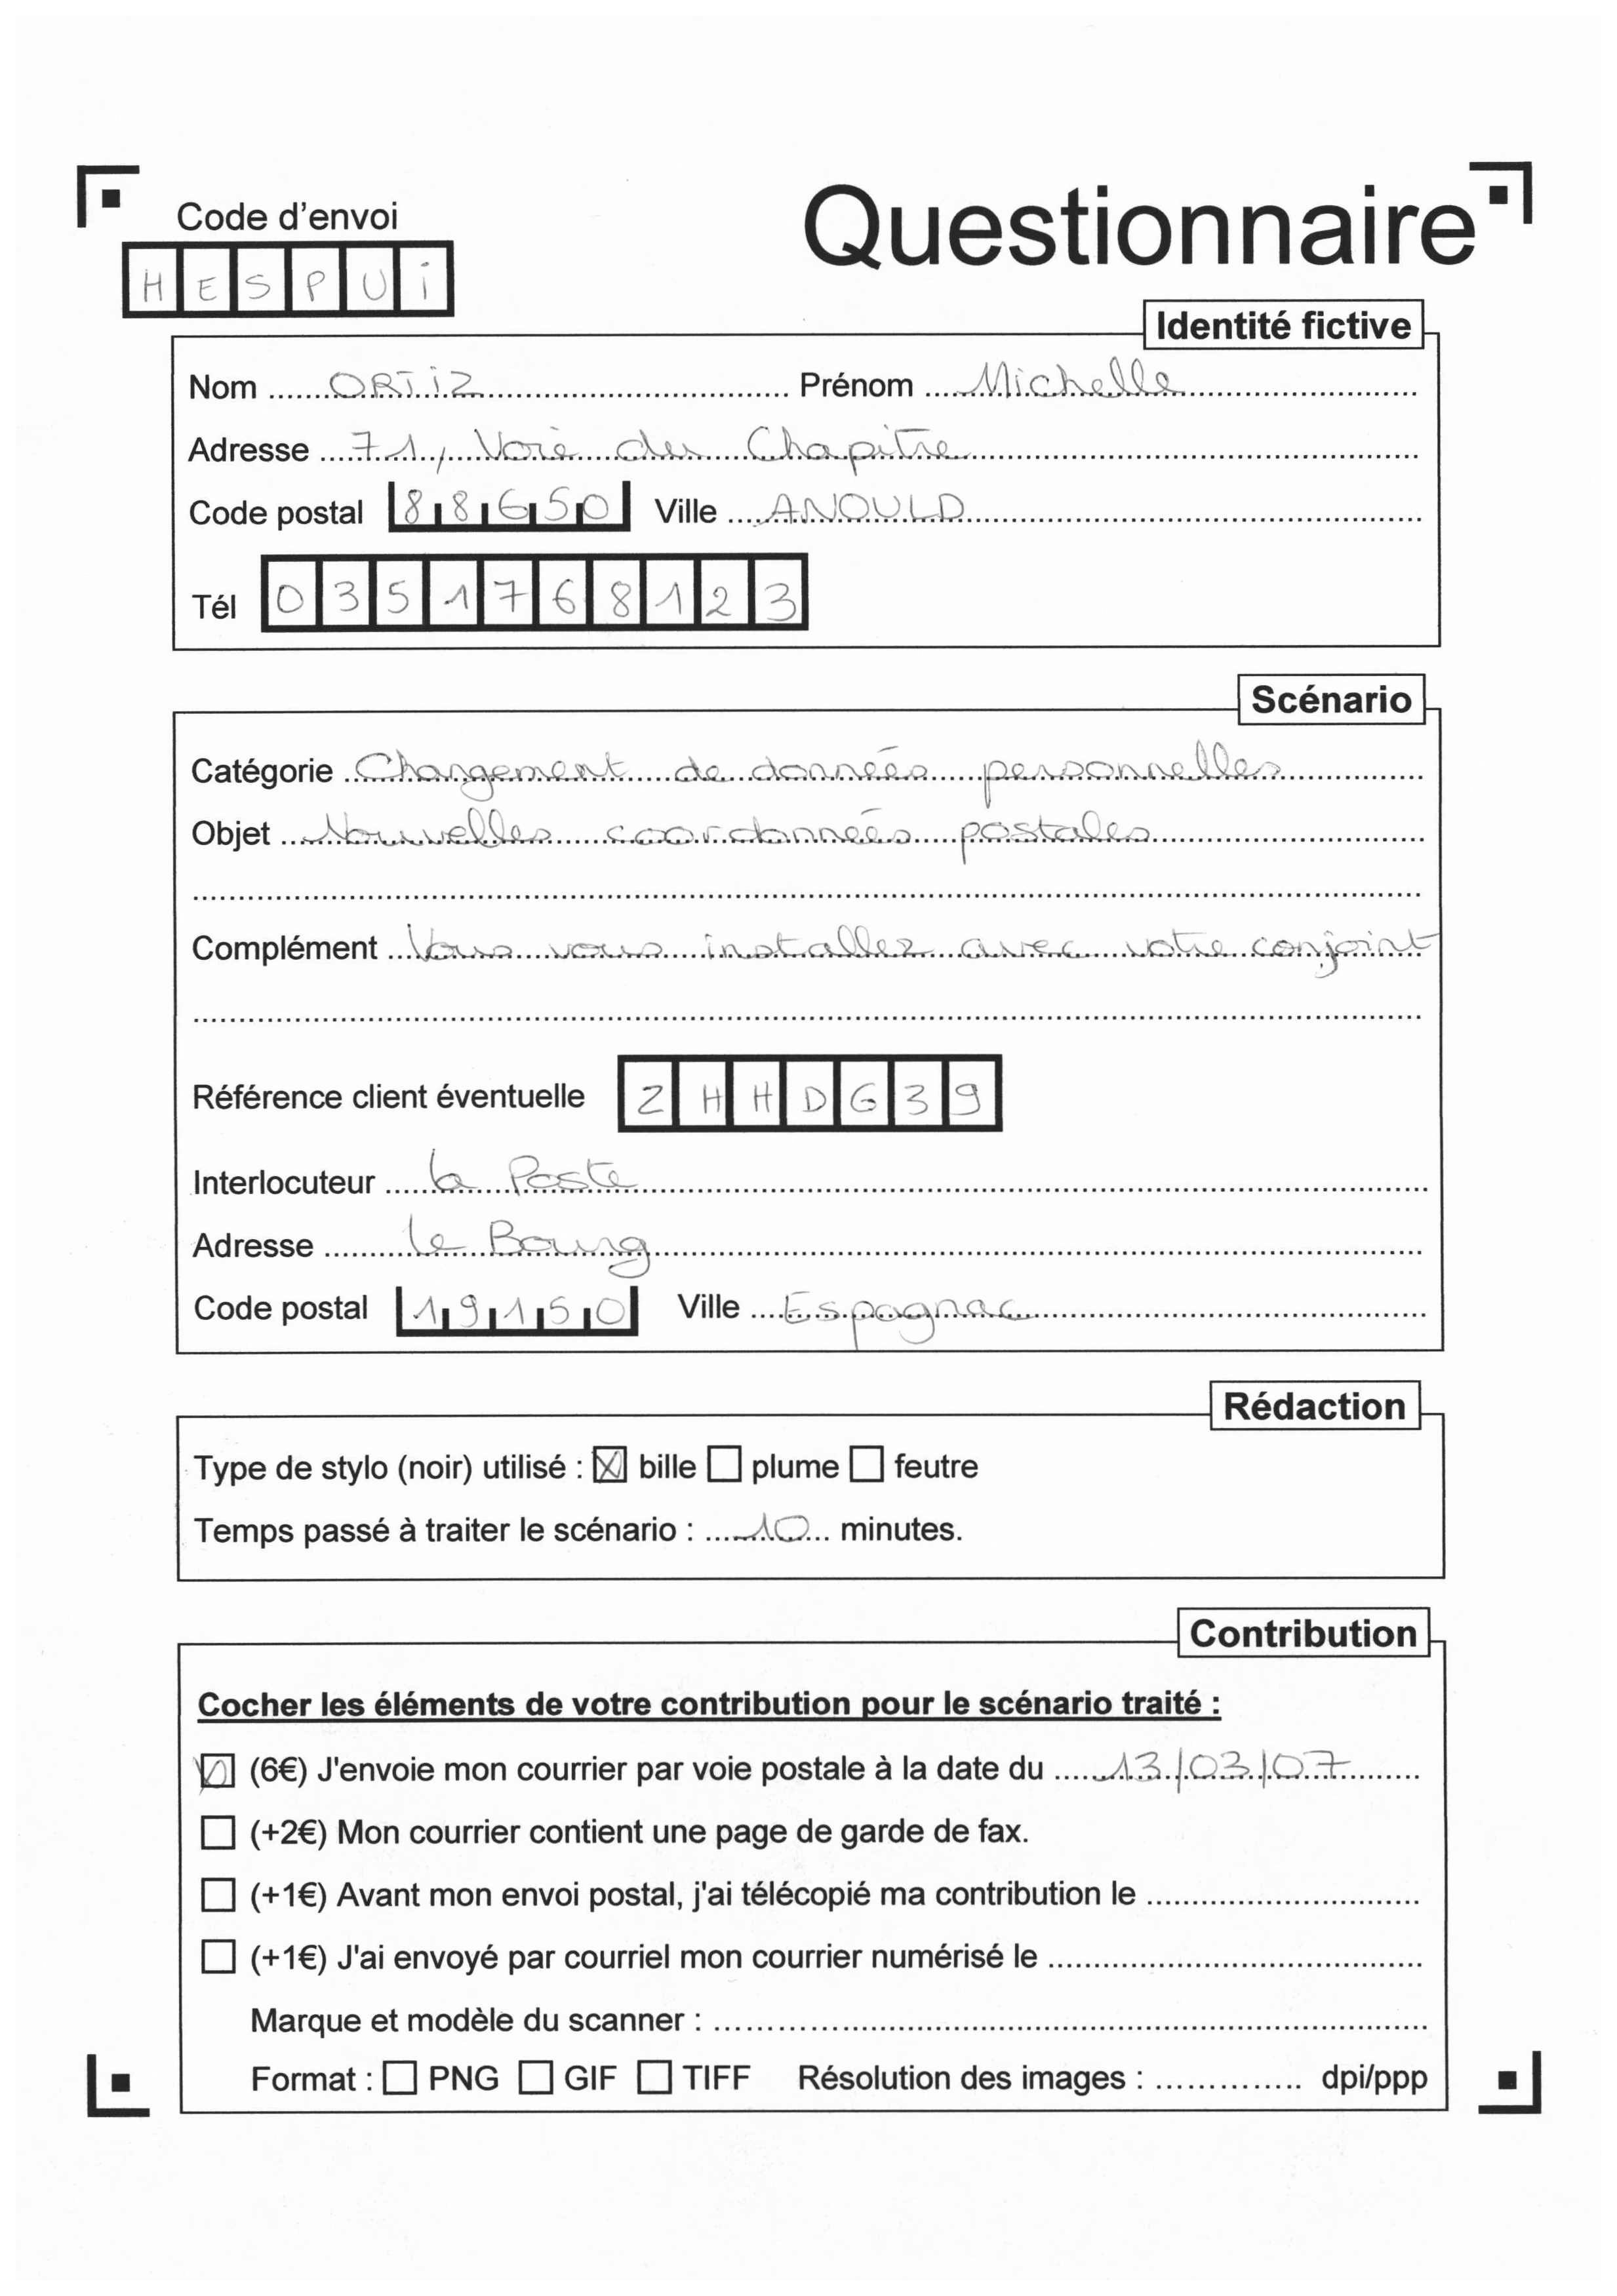 Code d'envoi
Questionnaire
HESPUi
Identité fictive
Nom ORTiZ Prénom Michelle
Adresse 71, Voie du Chapitre
Code postal 88650 Ville ANOULD
Tél 0351768123
Scénario
Catégorie Changement de données personnelles
Objet Nouvelles coordonnées postales
Complément Vous vous installez avec votre conjoint
Référence client éventuelle ZHHDG39
Interlocuteur la Poste
Adresse le Bourg
Code postal 19150 Ville Espagnac
Rédaction
Type de stylo (noir) utilisé : ☒ bille ☐ plume ☐ feutre
Temps passé à traiter le scénario : 10 minutes.
Contribution
Cocher les éléments de votre contribution pour le scénario traité :
☒ (6€) J'envoie mon courrier par voie postale à la date du 13/03/07
☐ (+2€) Mon courrier contient une page de garde de fax.
☐ (+1€) Avant mon envoi postal, j'ai télécopié ma contribution le
☐ (+1€) J'ai envoyé par courriel mon courrier numérisé le
Marque et modèle du scanner :
Format : ☐ PNG ☐ GIF ☐ TIFF Résolution des images : dpi/ppp